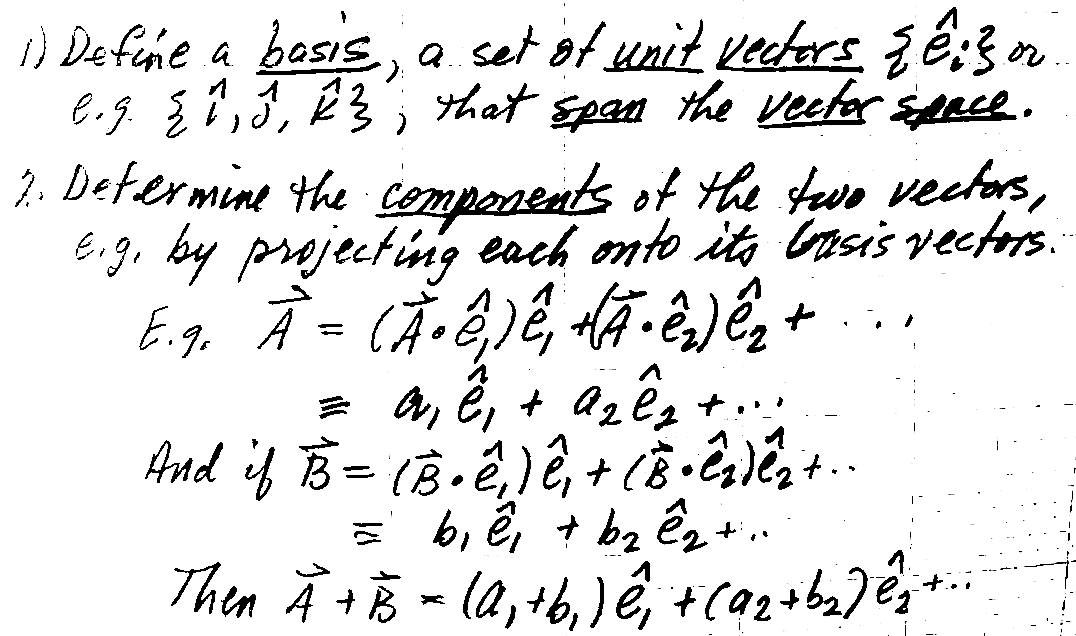 1) Define a basis, a set of unit vectors {ê_i} or
e.g. {î, ĵ, k̂}, that span the vector space.
2. Determine the components of the two vectors,
e.g. by projecting each onto its basis vectors.
E.g. A⃗ = (A⃗·ê₁)ê₁ + (A⃗·ê₂)ê₂ + ...
≡ a₁ê₁ + a₂ê₂ + ...
And if B⃗ = (B⃗·ê₁)ê₁ + (B⃗·ê₂)ê₂ + ..
≡ b₁ê₁ + b₂ê₂ + ..
Then A⃗ + B⃗ = (a₁+b₁)ê₁ + (a₂+b₂)ê₂ + ..